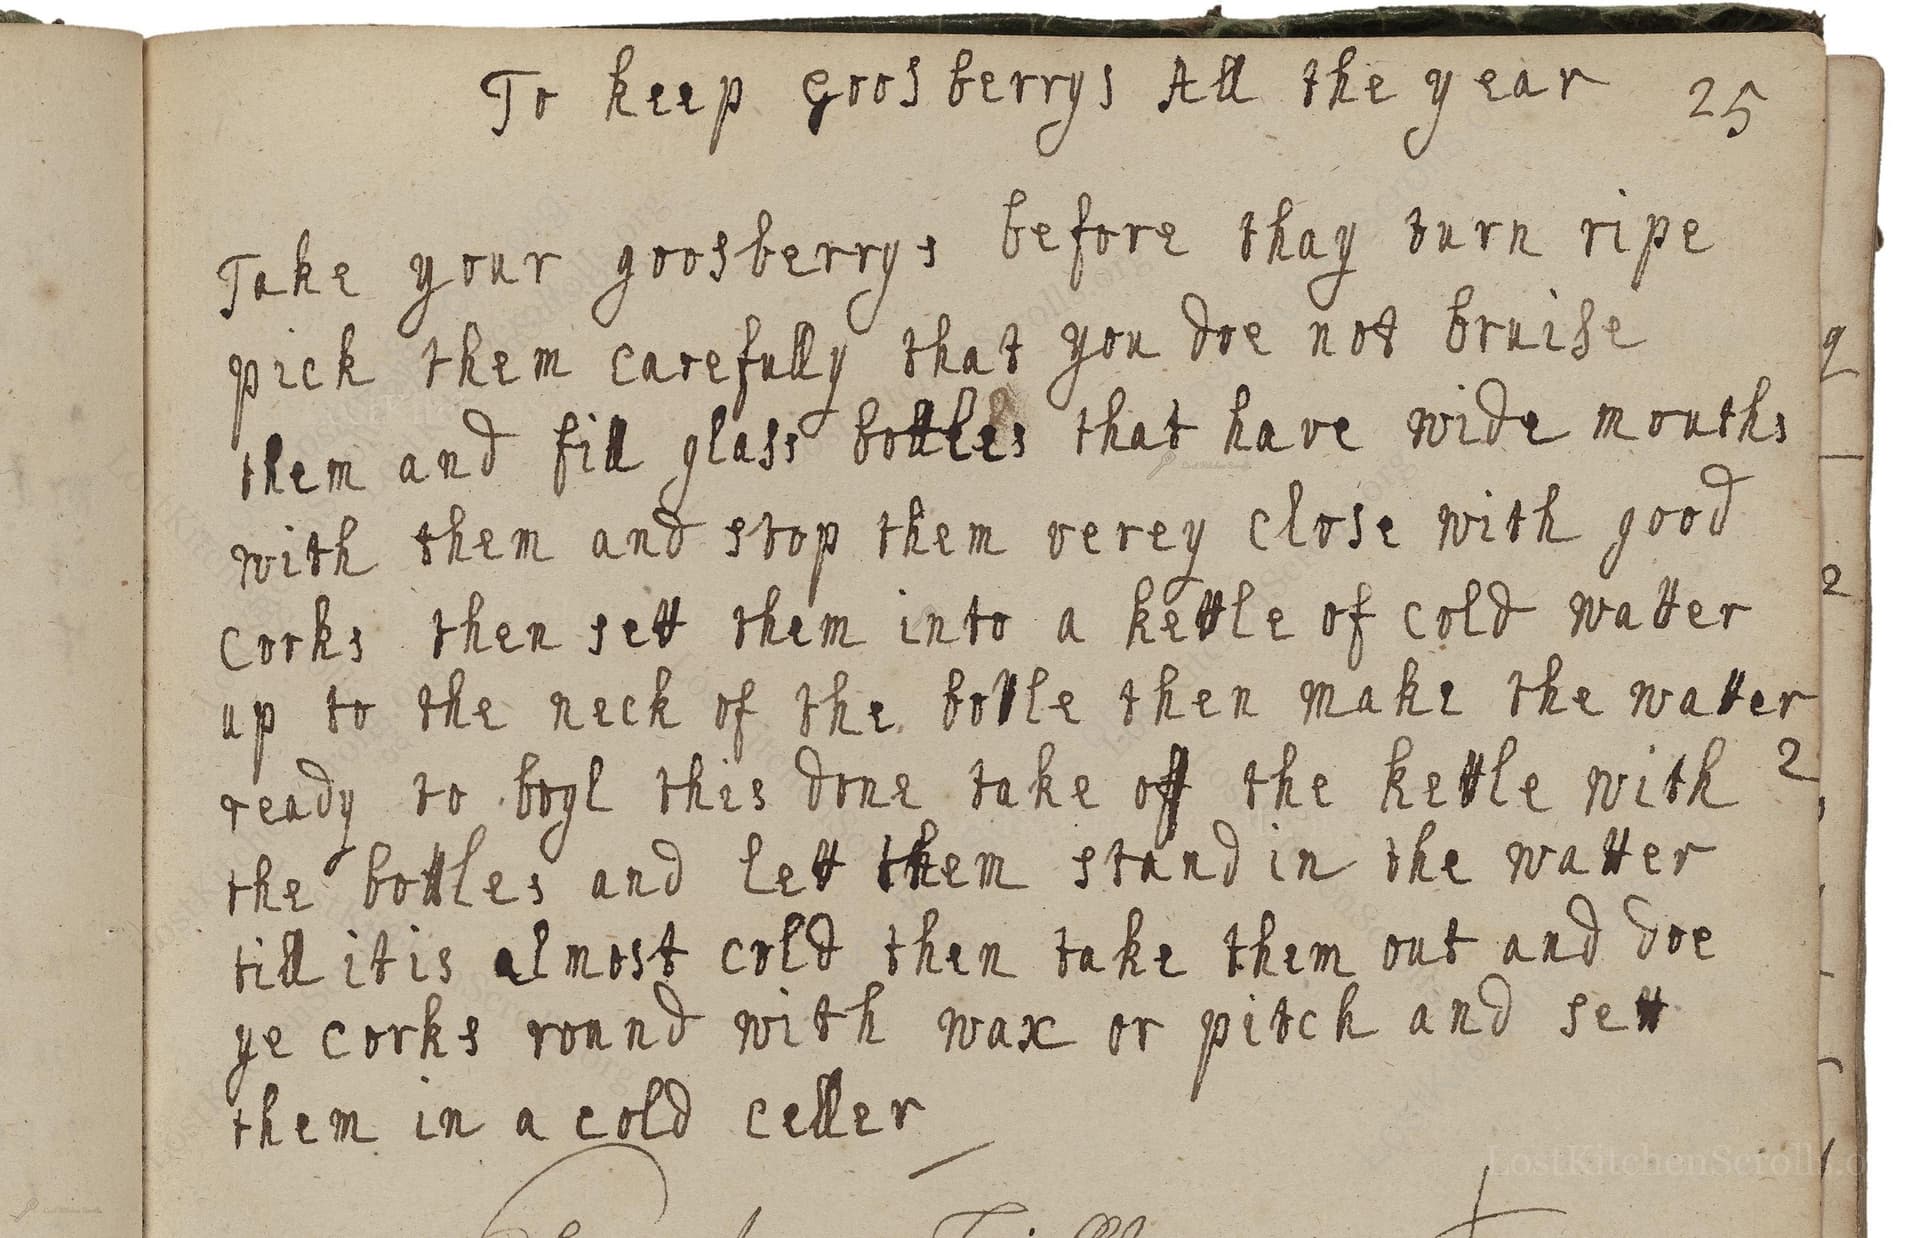 To keep Goosberrys All the year 25
Take your goosberrys before thay turn ripe
pick them carefully that you doe not bruise
them and fill glass bottles that have wide mouths
with them and stop them verey close with good
corks then sett them into a kettle of cold watter
up to the neck of the bottle then make the watter
ready to boyl this done take off the kettle with
the bottles and lett them stand in the watter
till it is almost cold then take them out and doe
ye corks round with wax or pitch and sett
them in a cold celler
LostKitchenScrolls.o